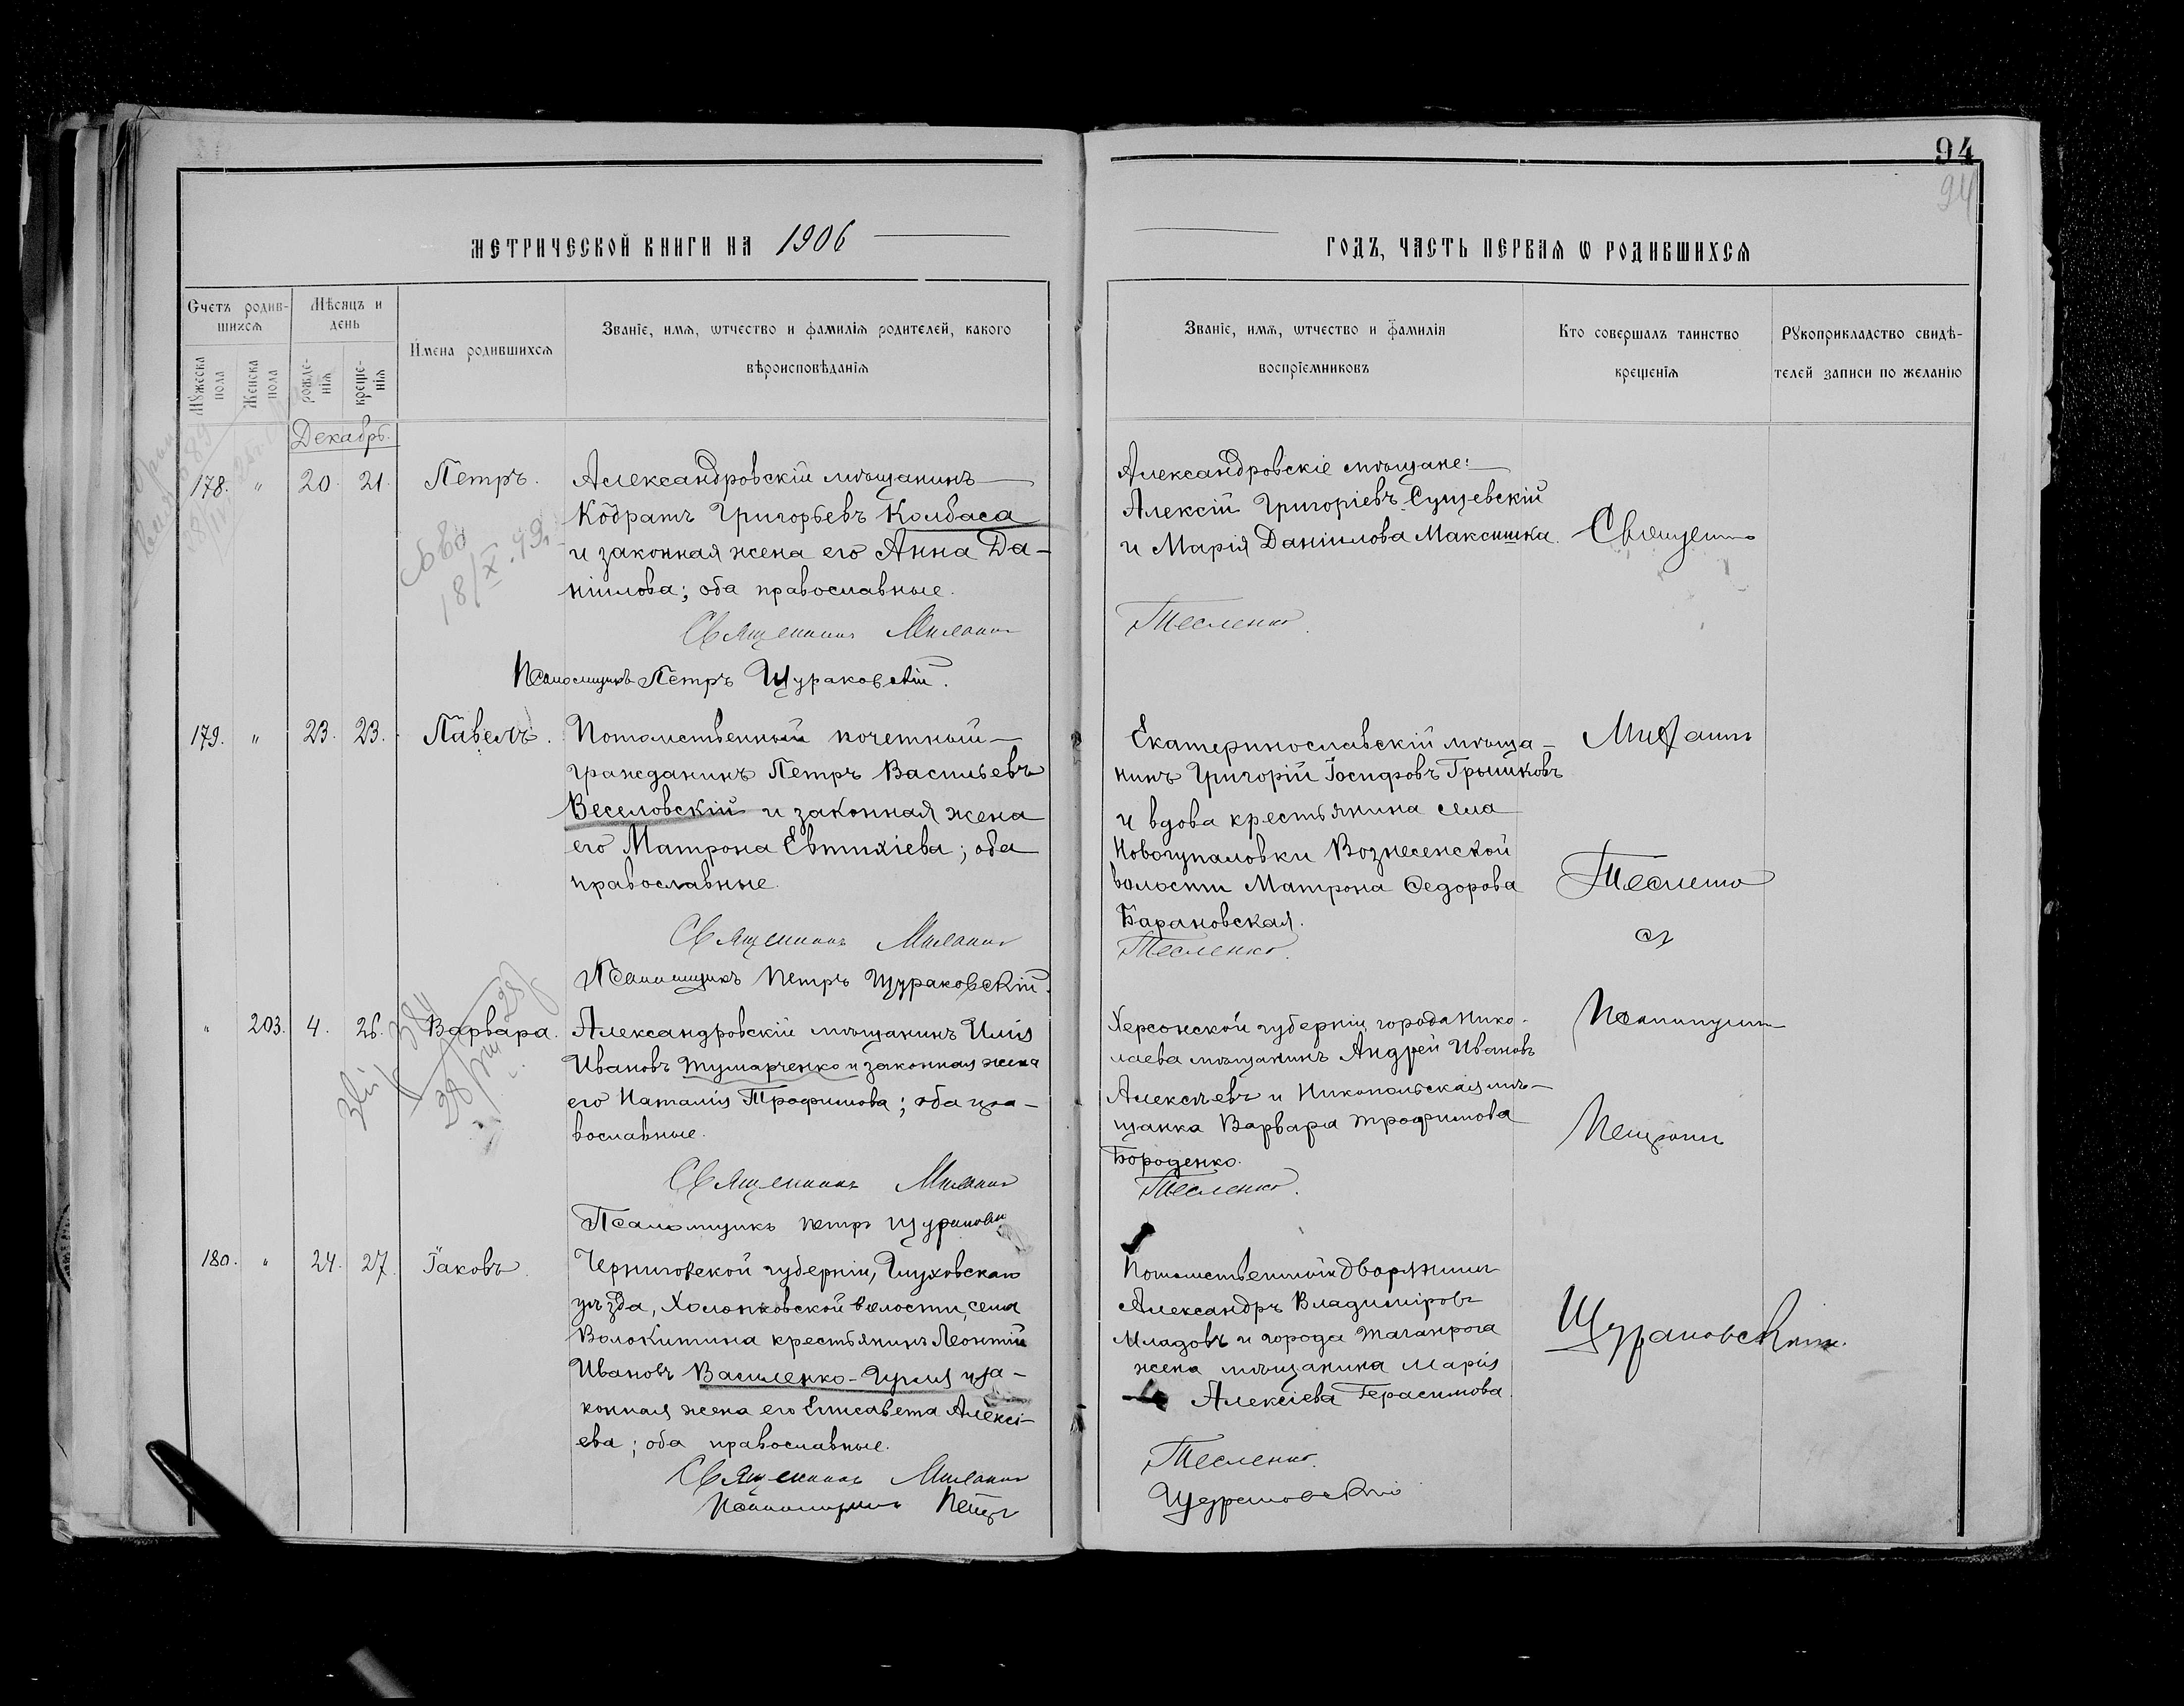 94
94
МЕТРИЧЕСКОЙ КНИГИ НА 1906
ГОДЪ, ЧАСТЬ ПЕРВАЯ Ѡ РОДИВШИХСЯ
Счетъ родив-
шихся
Мѣсяцъ и
день
Мужеска
пола
Женска
пола
рожде-
нія
креще-
нія
Имена родившихся
Званіе, имя, ѿчество и фамилія родителей, какого
вѣроисповѣданія
Званіе, имя, ѿчество и фамилія
воспріемниковъ
Кто совершалъ таинство
крещенія
Рукоприкладство свидѣ-
телей записи по желанію
Декабрь.
178. " 20. 21. Петръ.
Александровскій мѣщанинъ
Кодратъ Григорьевъ Колбаса
и законная жена его Анна Да-
ніилова; оба православные.
Священникъ
Псаломщикъ Петръ Щураковскій.
18/X.49
Александровскіе мѣщане:
Алексій Григоріевъ Сущевскій
и Марія Даніилова Максишка.
Тесленко.
Священникъ
179. " 23. 23. Павелъ.
Потомственный почетный
гражданинъ Петръ Васильевъ
Веселовскій и законная жена
его Матрона Евтихіева; оба
православные.
Священникъ
Псаломщикъ Петръ Щураковскій.
Екатеринославскій мѣща-
нинъ Григорій Іосифовъ Грышковъ
и вдова крестьянина села
Новогупаловки Вознесенской
волости Матрона Ѳедорова
Барановская.
Тесленко.
Тесленко
съ
" 203. 4. 26. Варвара.
Александровскій мѣщанинъ Илія
Ивановъ Тумарченко и законная жена
его Наталія Трофимова; оба пра-
вославные.
Священникъ
Псаломщикъ Петръ Щураковскій
Херсонской губерніи города Нико-
лаева мѣщанинъ Андрей Ивановъ
Алексѣевъ и Никопольская мѣ-
щанка Варвара Трофимова
Бороденко.
Тесленко.
Псаломщикомъ
Петромъ
180. " 24. 27. Іаковъ.
Черниговской губерніи, Глуховскаго
уѣзда, Холопковской волости, села
Волокитина крестьянинъ Леонтій
Ивановъ Василенко-Гурма и за-
конная жена его Елисавета Алексі-
ева; оба православные.
Священникъ
Псаломщикъ Петръ
Потомственный дворянинъ
Александръ Владиміровъ
Младовъ и города Таганрога
жена мѣщанина Марія
Алексіева Герасимова.
Тесленко.
Щураковскій
Щураковскимъ.